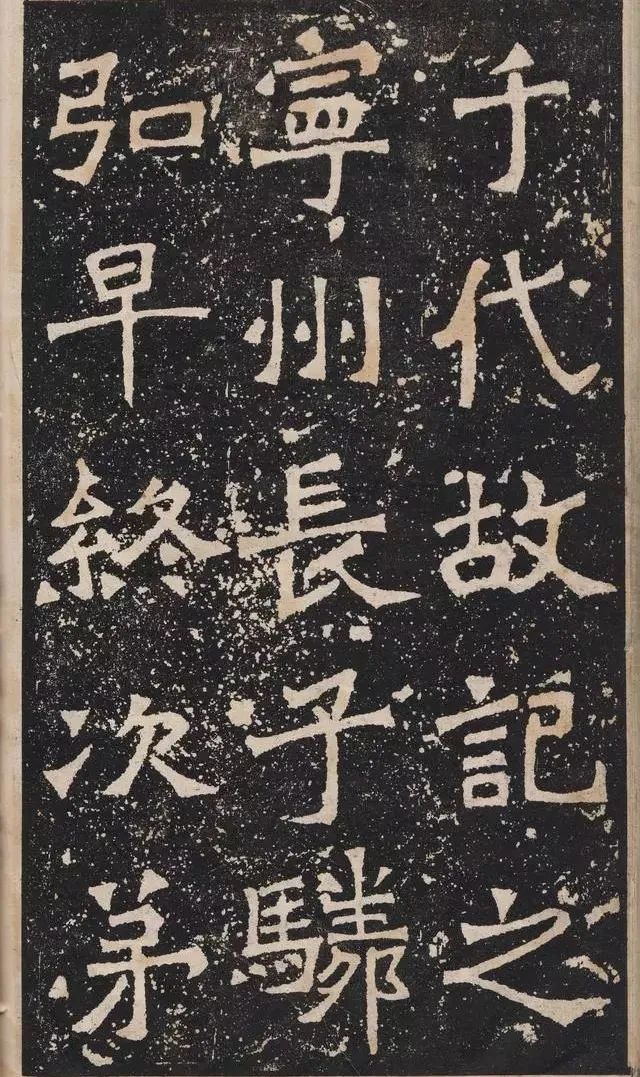 千代故記之
寧州長子驎
弘早終次弟